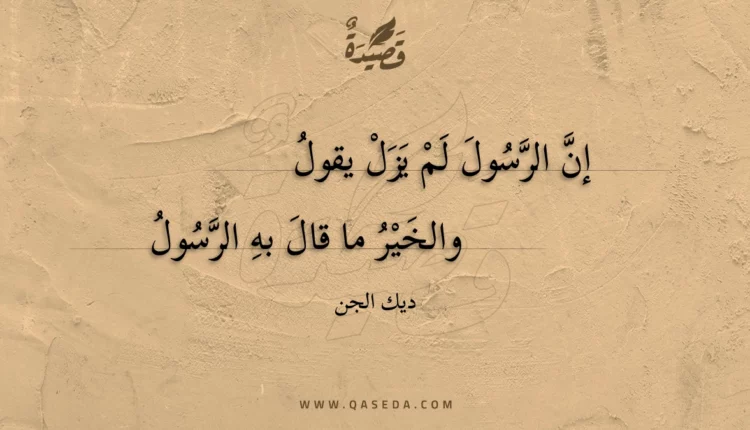 قَصِيدَةٌ
إنَّ الرَّسُولَ لَمْ يَزَلْ يقولُ
والخَيْرُ ما قالَ بهِ الرَّسُولُ
ديك الجن
WWW.QASEDA.COM